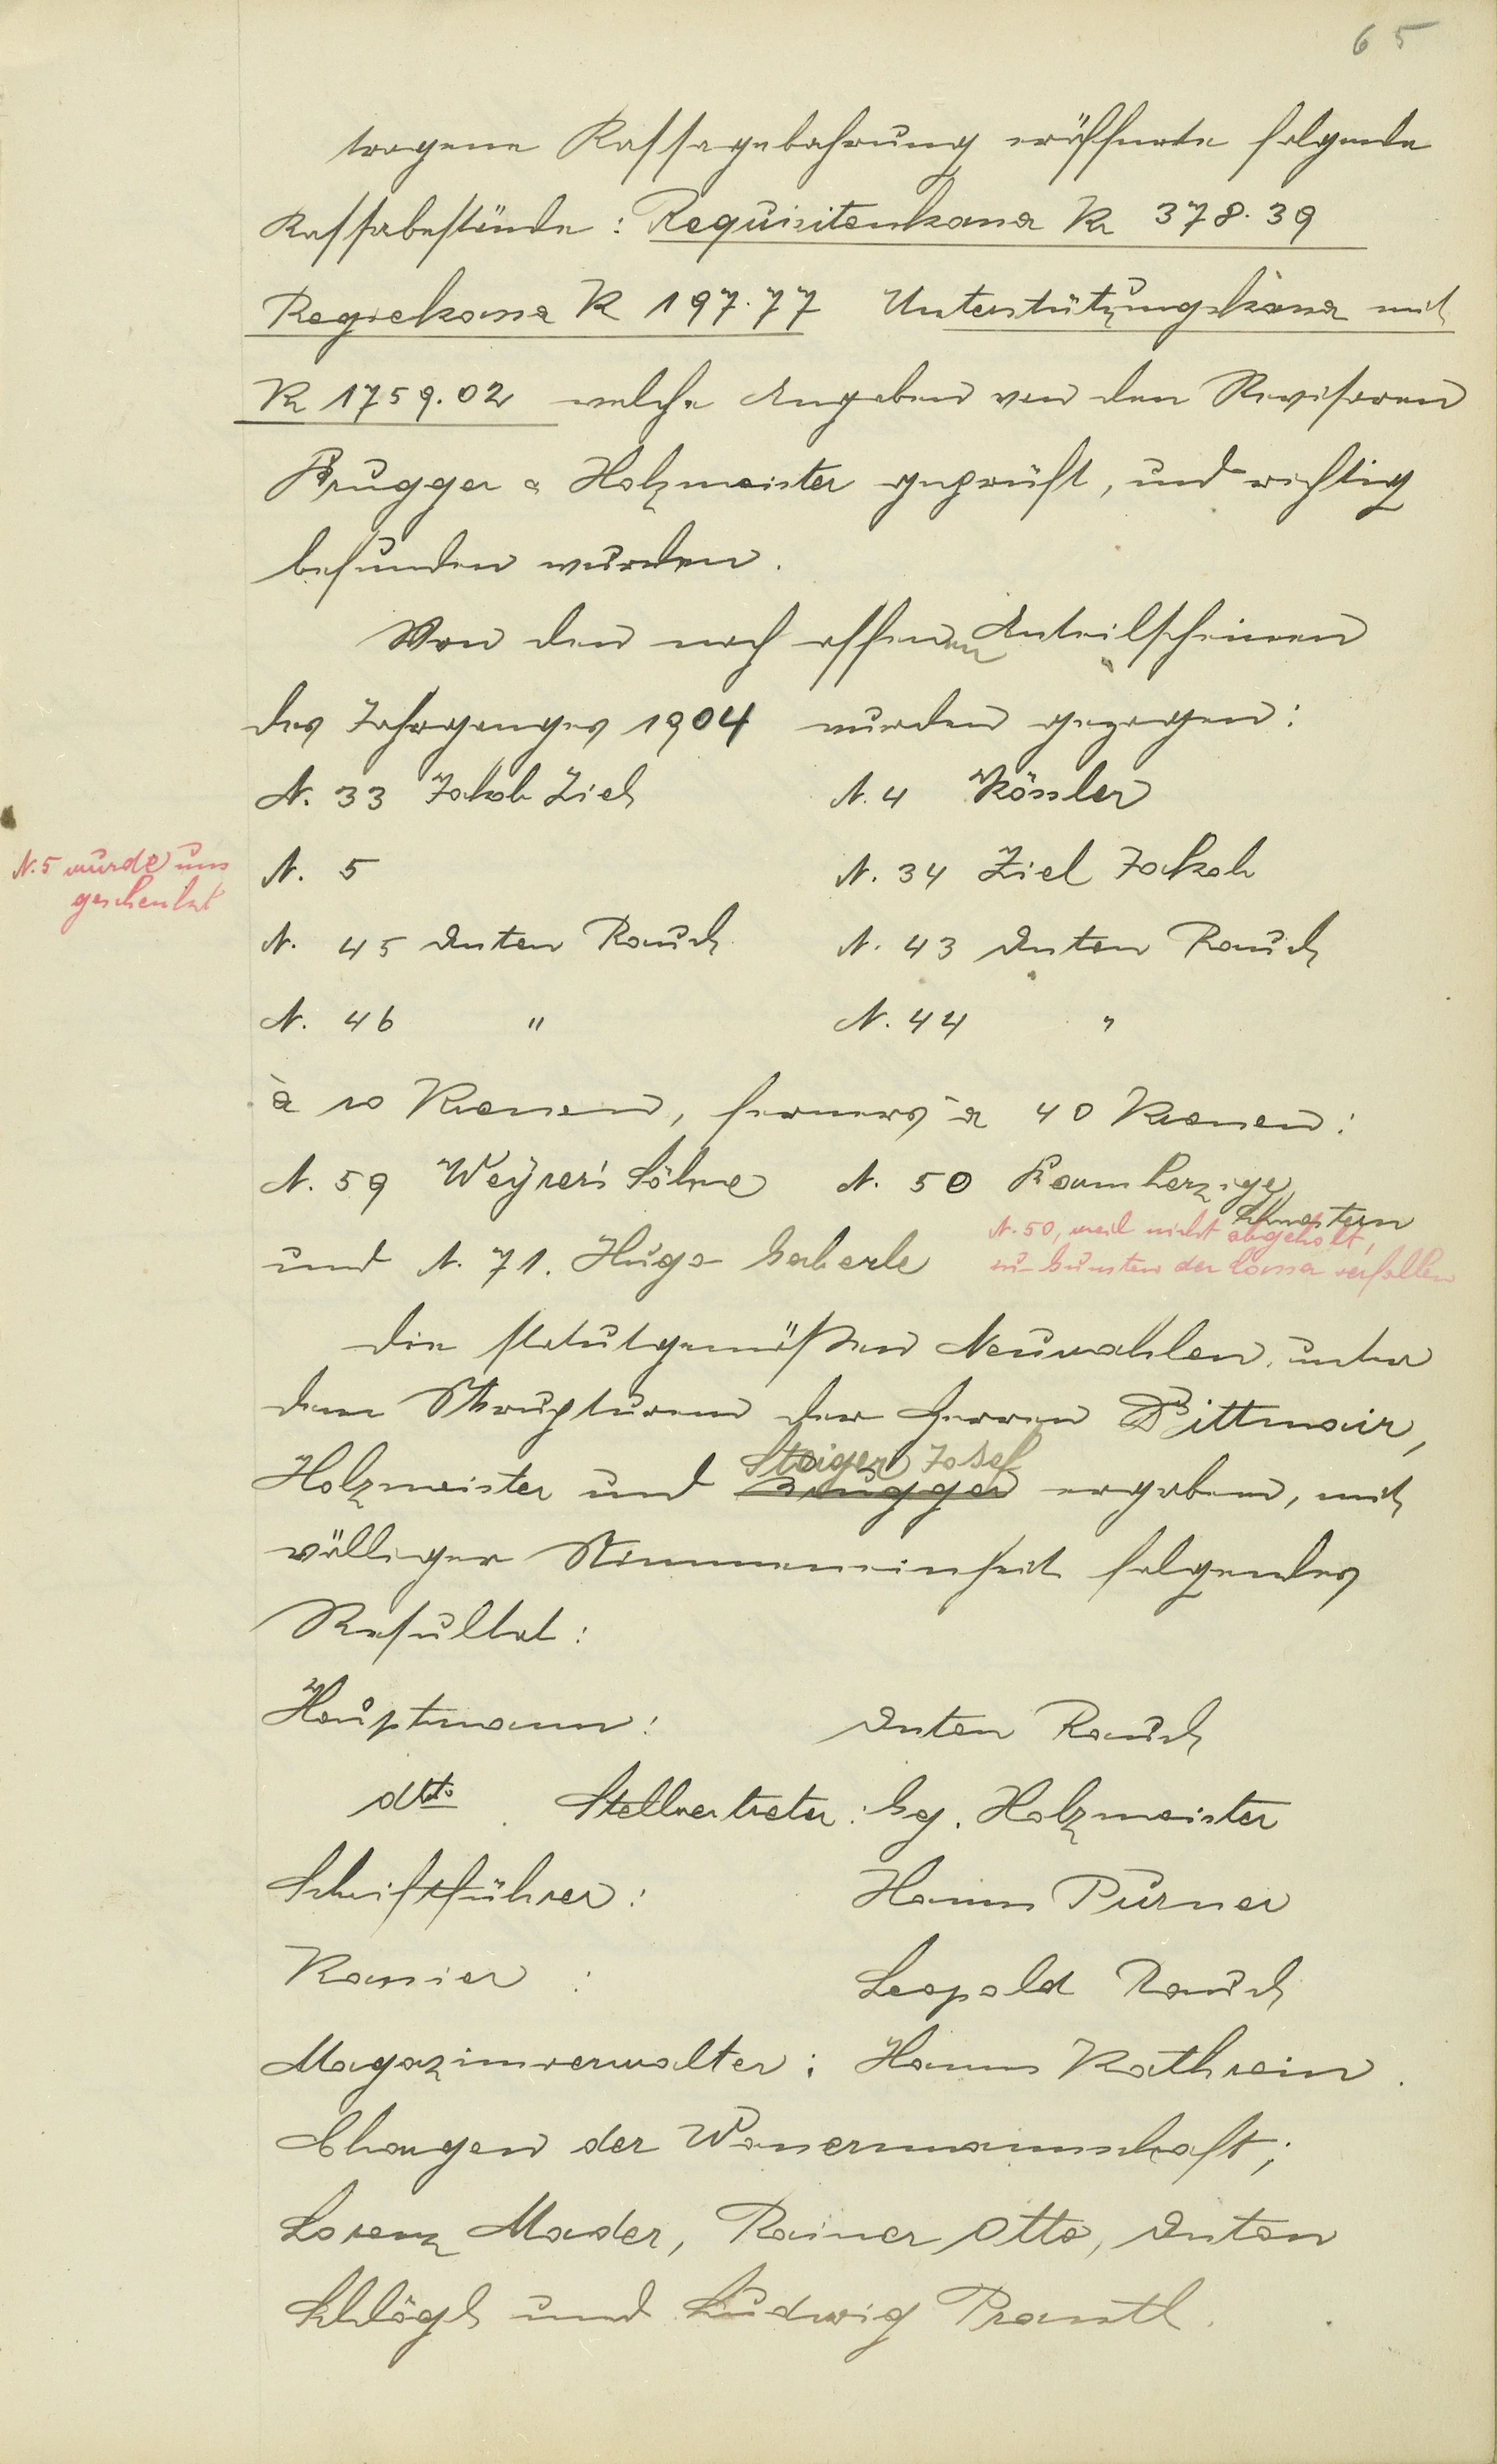 65
tragene Kassagebahrung eröffnete folgende
Kassabestände: Requisitenkassa K 378.39
Regiekassa K 197.77 Unterstützungskassa mit
K 1759.02 welche Angaben von den Revisoren
Brugger & Holzmeister geprüft, und richtig
befunden wurden.
Von den noch offenen Anteilscheinen
des Jahrganges 1904 wurden gezogen:
N. 33 Jakob Ziel N. 4 Kössler
N. 5 wurde uns
geschenkt
N. 5 N. 34 Ziel Jakob
N. 45 Anton Rauch N. 43 Anton Rauch
N. 46 " N. 44 "
à 10 Kronen, ferners à 40 Kronen:
N. 59 Weyrer's Söhne N. 50 Barmherzige
Schwestern
N. 50, weil nicht abgeholt,
zu Gunsten der Cassa verfallen
und N. 71. Hugo Gaberle
Die statutgemäßen Neuwahlen unter
dem Skrupturem der Herren Dittmair,
Steiger Josef
Holzmeister und Brugger ergaben, mit
völliger Stimmeneinheit folgendes
Resultat:
Hauptmann: Anton Rauch
dtto Stellvertreter: Gg. Holzmeister
Schriftführer: Hanns Purner
Kassier : Leopold Rauch
Magazinverwalter: Hanns Kathrein.
Chargen der Wassermannschaft;
Lorenz Mader, Rainer Otto, Anton
Schlögl und Ludwig Prantl.